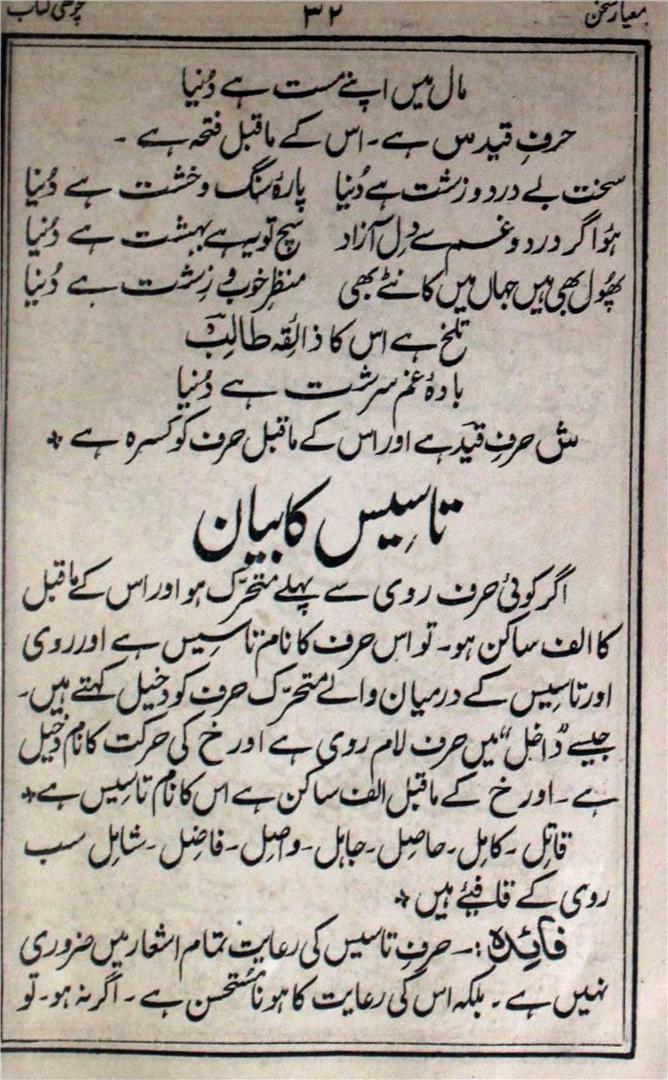 معیار سخن ۳۲ چوتھی کتاب
مال میں اپنے مست ہے دُنیا
حرفِ قید س ہے۔ اس کے ماقبل فتحہ ہے۔
سخت بے درد و زشت ہے دُنیا پارۂ سنگ و خشت ہے دُنیا
ہُوا گر درد و غم سے دِل آزاد سچ تو یہ ہے بہشت ہے دُنیا
پھُول بھی ہیں جہاں میں کانٹے بھی منظرِ خوب و زِشت ہے دُنیا
تلخ ہے اس کا ذائقہ طالبؔ
بادۂ غم سرشت ہے دُنیا
ش حرفِ قید ہے اور اس کے ماقبل حرف کو کسرہ ہے ٭
تاسِیس کا بیان
اگر کوئی حرف روی سے پہلے متحرّک ہو اور اس کے ماقبل
کا الف ساکن ہو۔ تو اس حرف کا نام تاسِیس ہے اور روی
اور تاسِیس کے درمیان والے متحرّک حرف کو دخیل کہتے ہیں۔
جیسے ”داخل“ میں حرف لام روی ہے اور خ کی حرکت کا نام دخیل
ہے۔ اور خ کے ماقبل الف ساکن ہے اس کا نام تاسِیس ہے٭
قاتِل۔ کامِل۔ حاصِل۔ جاہِل۔ واصِل۔ فاضِل۔ شامِل سب
روی کے قافیئے ہیں ٭
فائدہ:۔ حرفِ تاسیس کی رعایت تمام اشعار میں ضروری
نہیں ہے۔ بلکہ اس کی رعایت کا ہونا مُستحسن ہے۔ اگر نہ ہو۔ تو